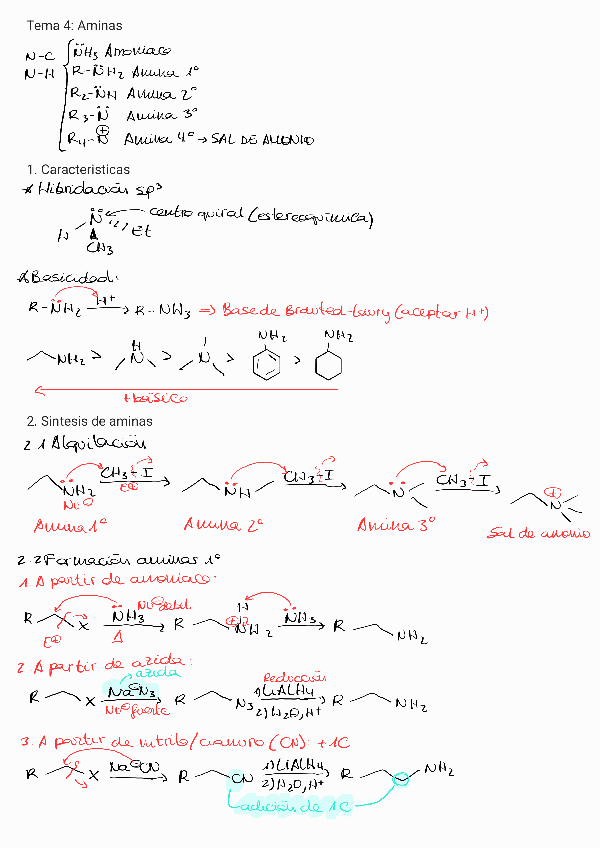 Tema 4: Aminas
N-C
N-H
NH3 Amoniaco
R-NH2 Amina 1º
R2-NH Amina 2º
R3-N Amina 3º
R4-N⊕ Amina 4º → SAL DE AMONIO
1. Caracteristicas
* Hibridación sp3
N ← centro quiral (estereoquímica)
H CH3 Et
* Basicidad:
R-NH2 H+ → R-NH3 ⇒ Base de Bronted-Lowry (aceptar H+)
NH2 > H N > N > NH2 > NH2
+básico
2. Sintesis de aminas
2.1 Alquilación
NH2 CH3-I → NH CH3-I → N CH3-I → N⊕
Nu⊖ E⊕
Amina 1º Amina 2º Amina 3º Sal de amonio
2.2 Formación aminas 1º
1 A partir de amoniaco:
Nu⊖ debil
R X NH3 → R H NH2 ⊕ NH3 → R NH2
E⊕ Δ
2. A partir de azida:
azida Reducción
R X Na⊕N3 → R N3 1) LiAlH4 2) H2O, H+ → R NH2
Nu⊖ fuerte
3. A partir de nitrilo/cianuro (CN): +1C
R X Na⊕CN → R CN 1) LiAlH4 2) H2O, H+ → R NH2
adición de 1C